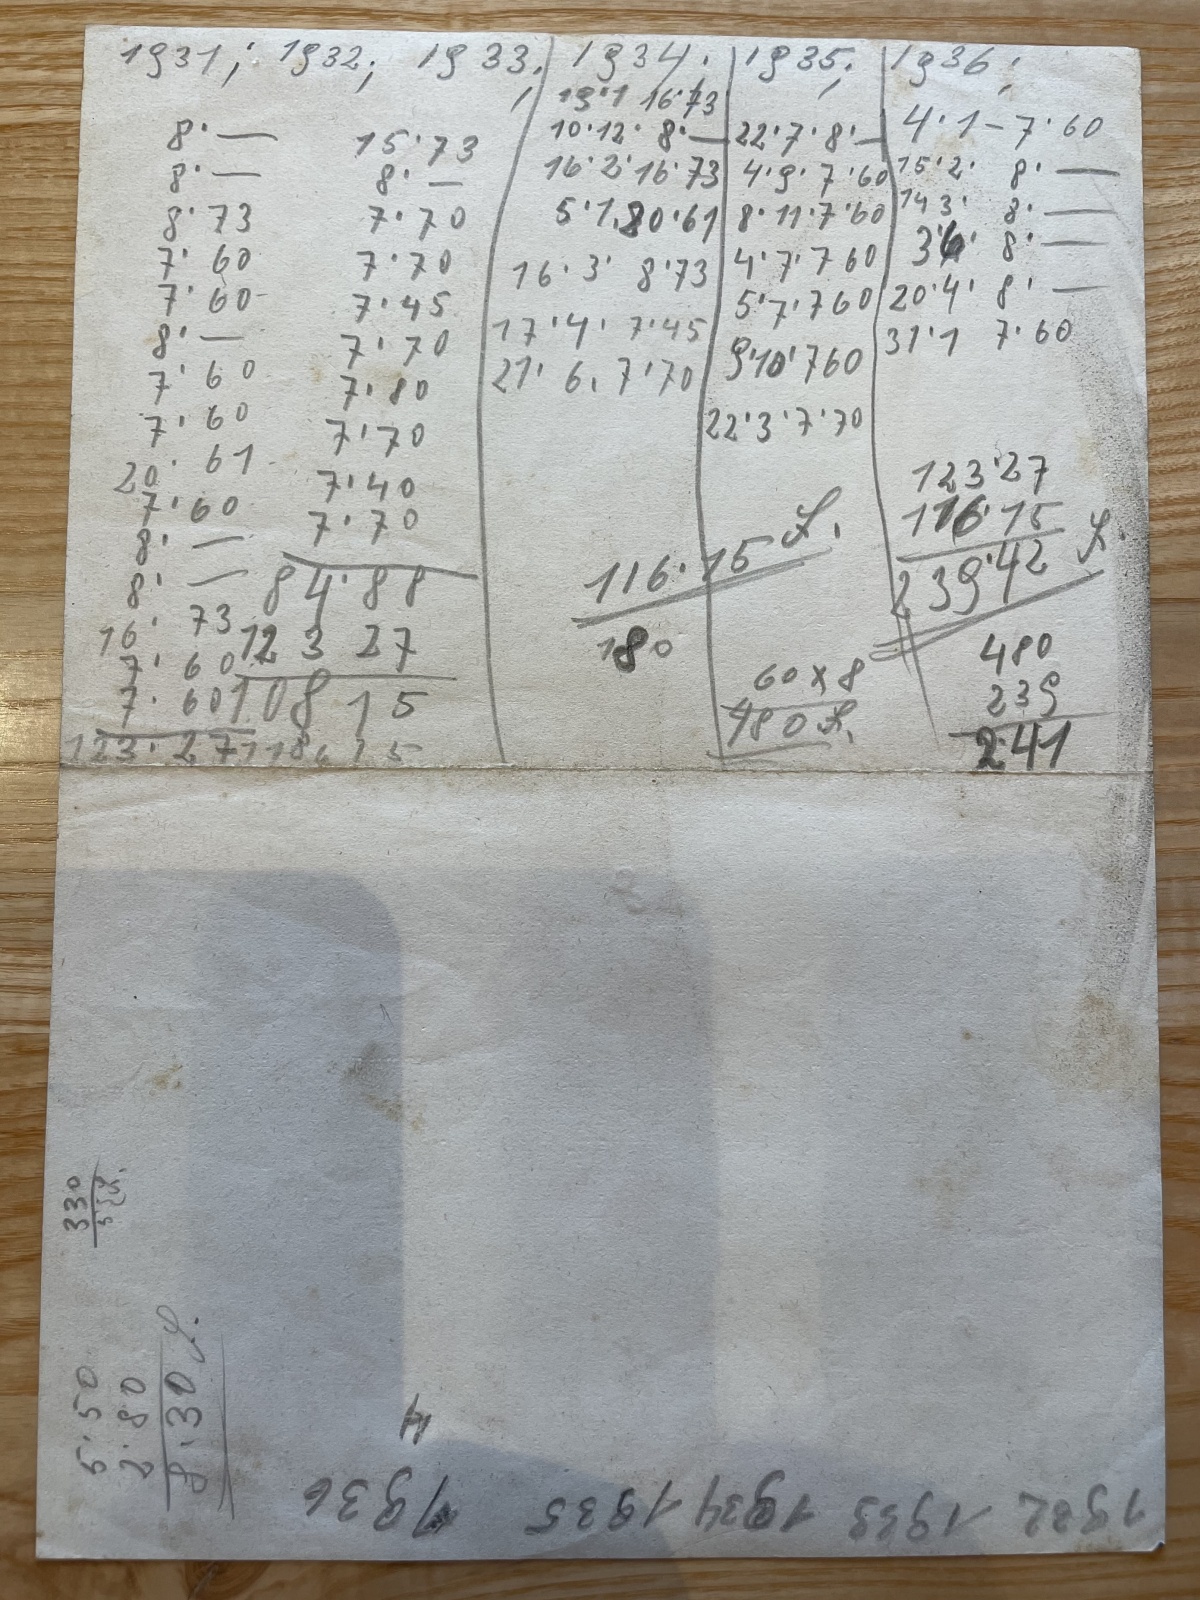 1931; 1932; 1933;
8·—
8·—
8·73
7·60
7·60
8·—
7·60
7·60
20·61
7·60
8·—
8·—
16·73
7·60
7·60
123·27
15·73
8·—
7·70
7·70
7·45
7·70
7·80
7·70
7·40
7·70
84·88
123 27
108 15
1934.
19·1 16·73
10·12· 8·—
16·2·16·73
5·1·80·61
16·3· 8·73
17·4· 7·45
21·6. 7·70
116·15 L.
180
1935;
22·7·8·—
4·9·7·60
8·11·7·60
4·7·7 60
5·7·7 60
9·10·7 60
22·3·7·70
60 x 8
480 L.
1936;
4·1–7·60
15·2· 8·—
14 3· 8·—
3·6· 8·—
20·4· 8·—
31·1 7·60
123·27
116·15
239·42 L.
480
239
2·41
330
5·50
2·80
8·30 L.
4
1932 1933 1934 1935 1936